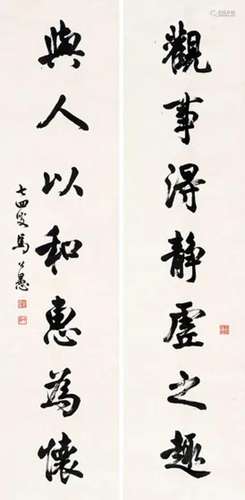 觀事得靜虛之趣
與人以和惠為懷
七四叟馬公愚